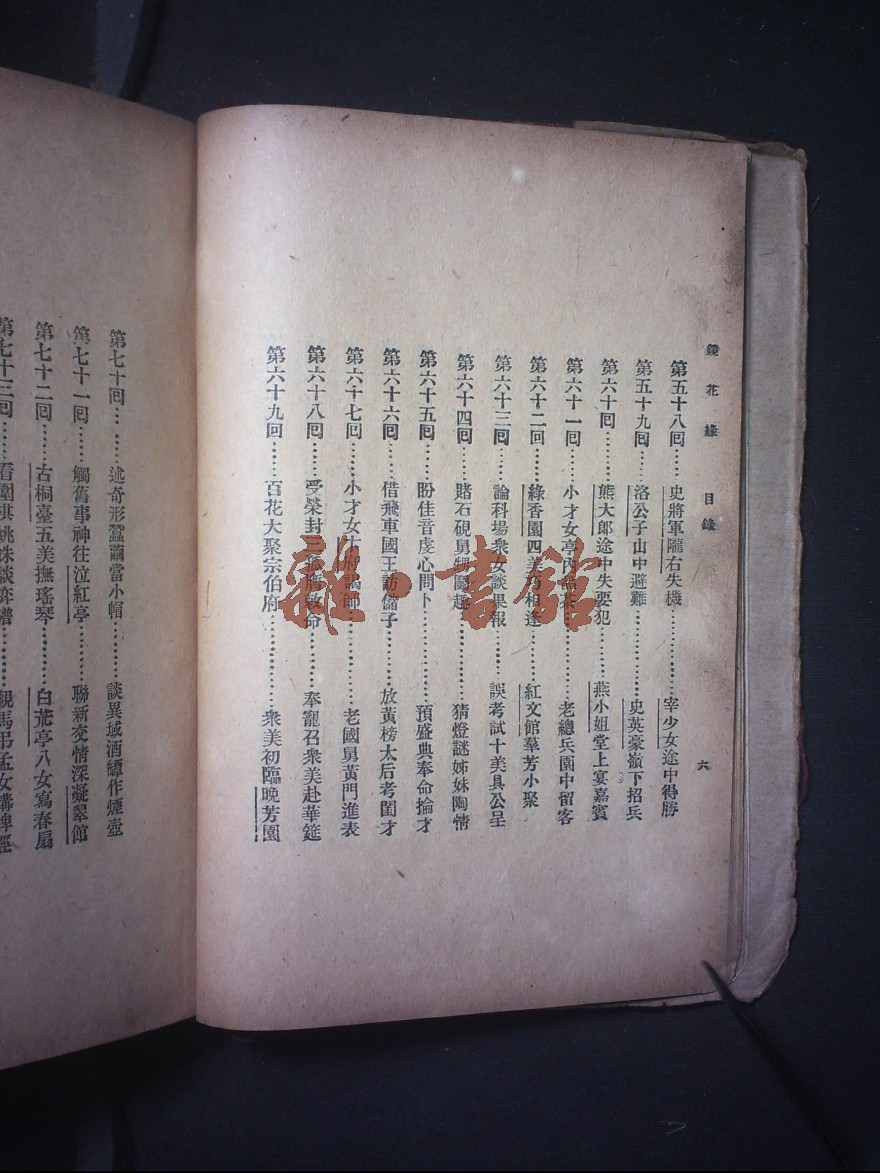 鏡花緣 目錄
六
第五十八回……史將軍隴右失機………宰少女途中得勝
第五十九回……洛公子山中避難………史英豪嶺下招兵
第六十回……熊大郎途中失要犯………燕小姐堂上宴嘉賓
第六十一回……小才女亭內………老總兵園中留客
第六十二回……綠香園四美相逢………紅文館羣芳小聚
第六十三回……論科場衆女談果報………誤考試十美具公呈
第六十四回……賭石硯舅甥………猜燈謎姊妹陶情
第六十五回……盼佳音虔心問卜………預盛典奉命掄才
第六十六回……借飛車國王訪儲子………放黃榜太后考閨才
第六十七回……小才女卞府謁師………老國舅黃門進表
第六十八回……受榮封三孤膺敕命………奉寵召衆美赴華筵
第六十九回……百花大聚宗伯府………衆美初臨晚芳園
第七十回……述奇形蠶繭當小帽………談異域酒罈作煙壺
第七十一回……觸舊事神往泣紅亭………聯新交情深凝翠館
第七十二回……古桐臺五美撫瑤琴………白蒁亭八女寫春扇
第七十三回……看圍棋姚姝談弈譜………觀馬吊孟女講牌經
雜·書館